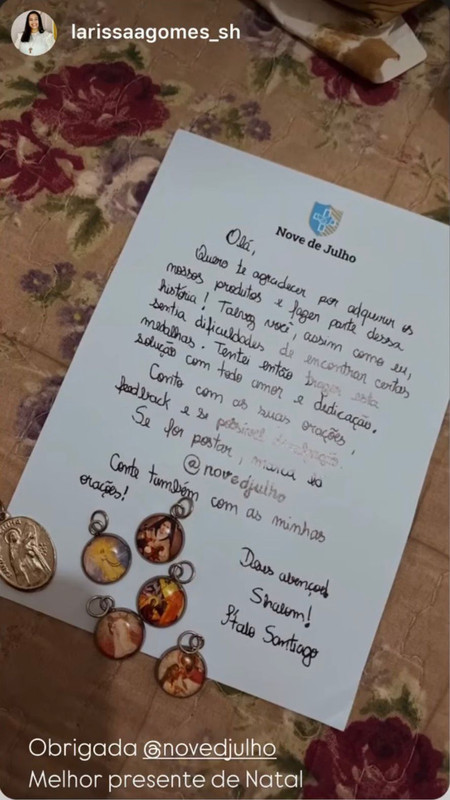 larissaagomes_sh
Nove de Julho
Olá,
Quero te agradecer por adquirir os
nossos produtos e fazer parte dessa
história! Talvez você, assim como eu,
sentia dificuldades de encontrar certas
medalhas. Tentei então trazer esta
solução com todo amor e dedicação.
Conto com as suas orações,
feedback e se possível divulgação.
Se for postar, marca lá
@novedjulho
Conte também com as minhas
orações!
Deus abençoe!
Shalom!
Ítalo Santiago
Obrigada @novedjulho
Melhor presente de Natal